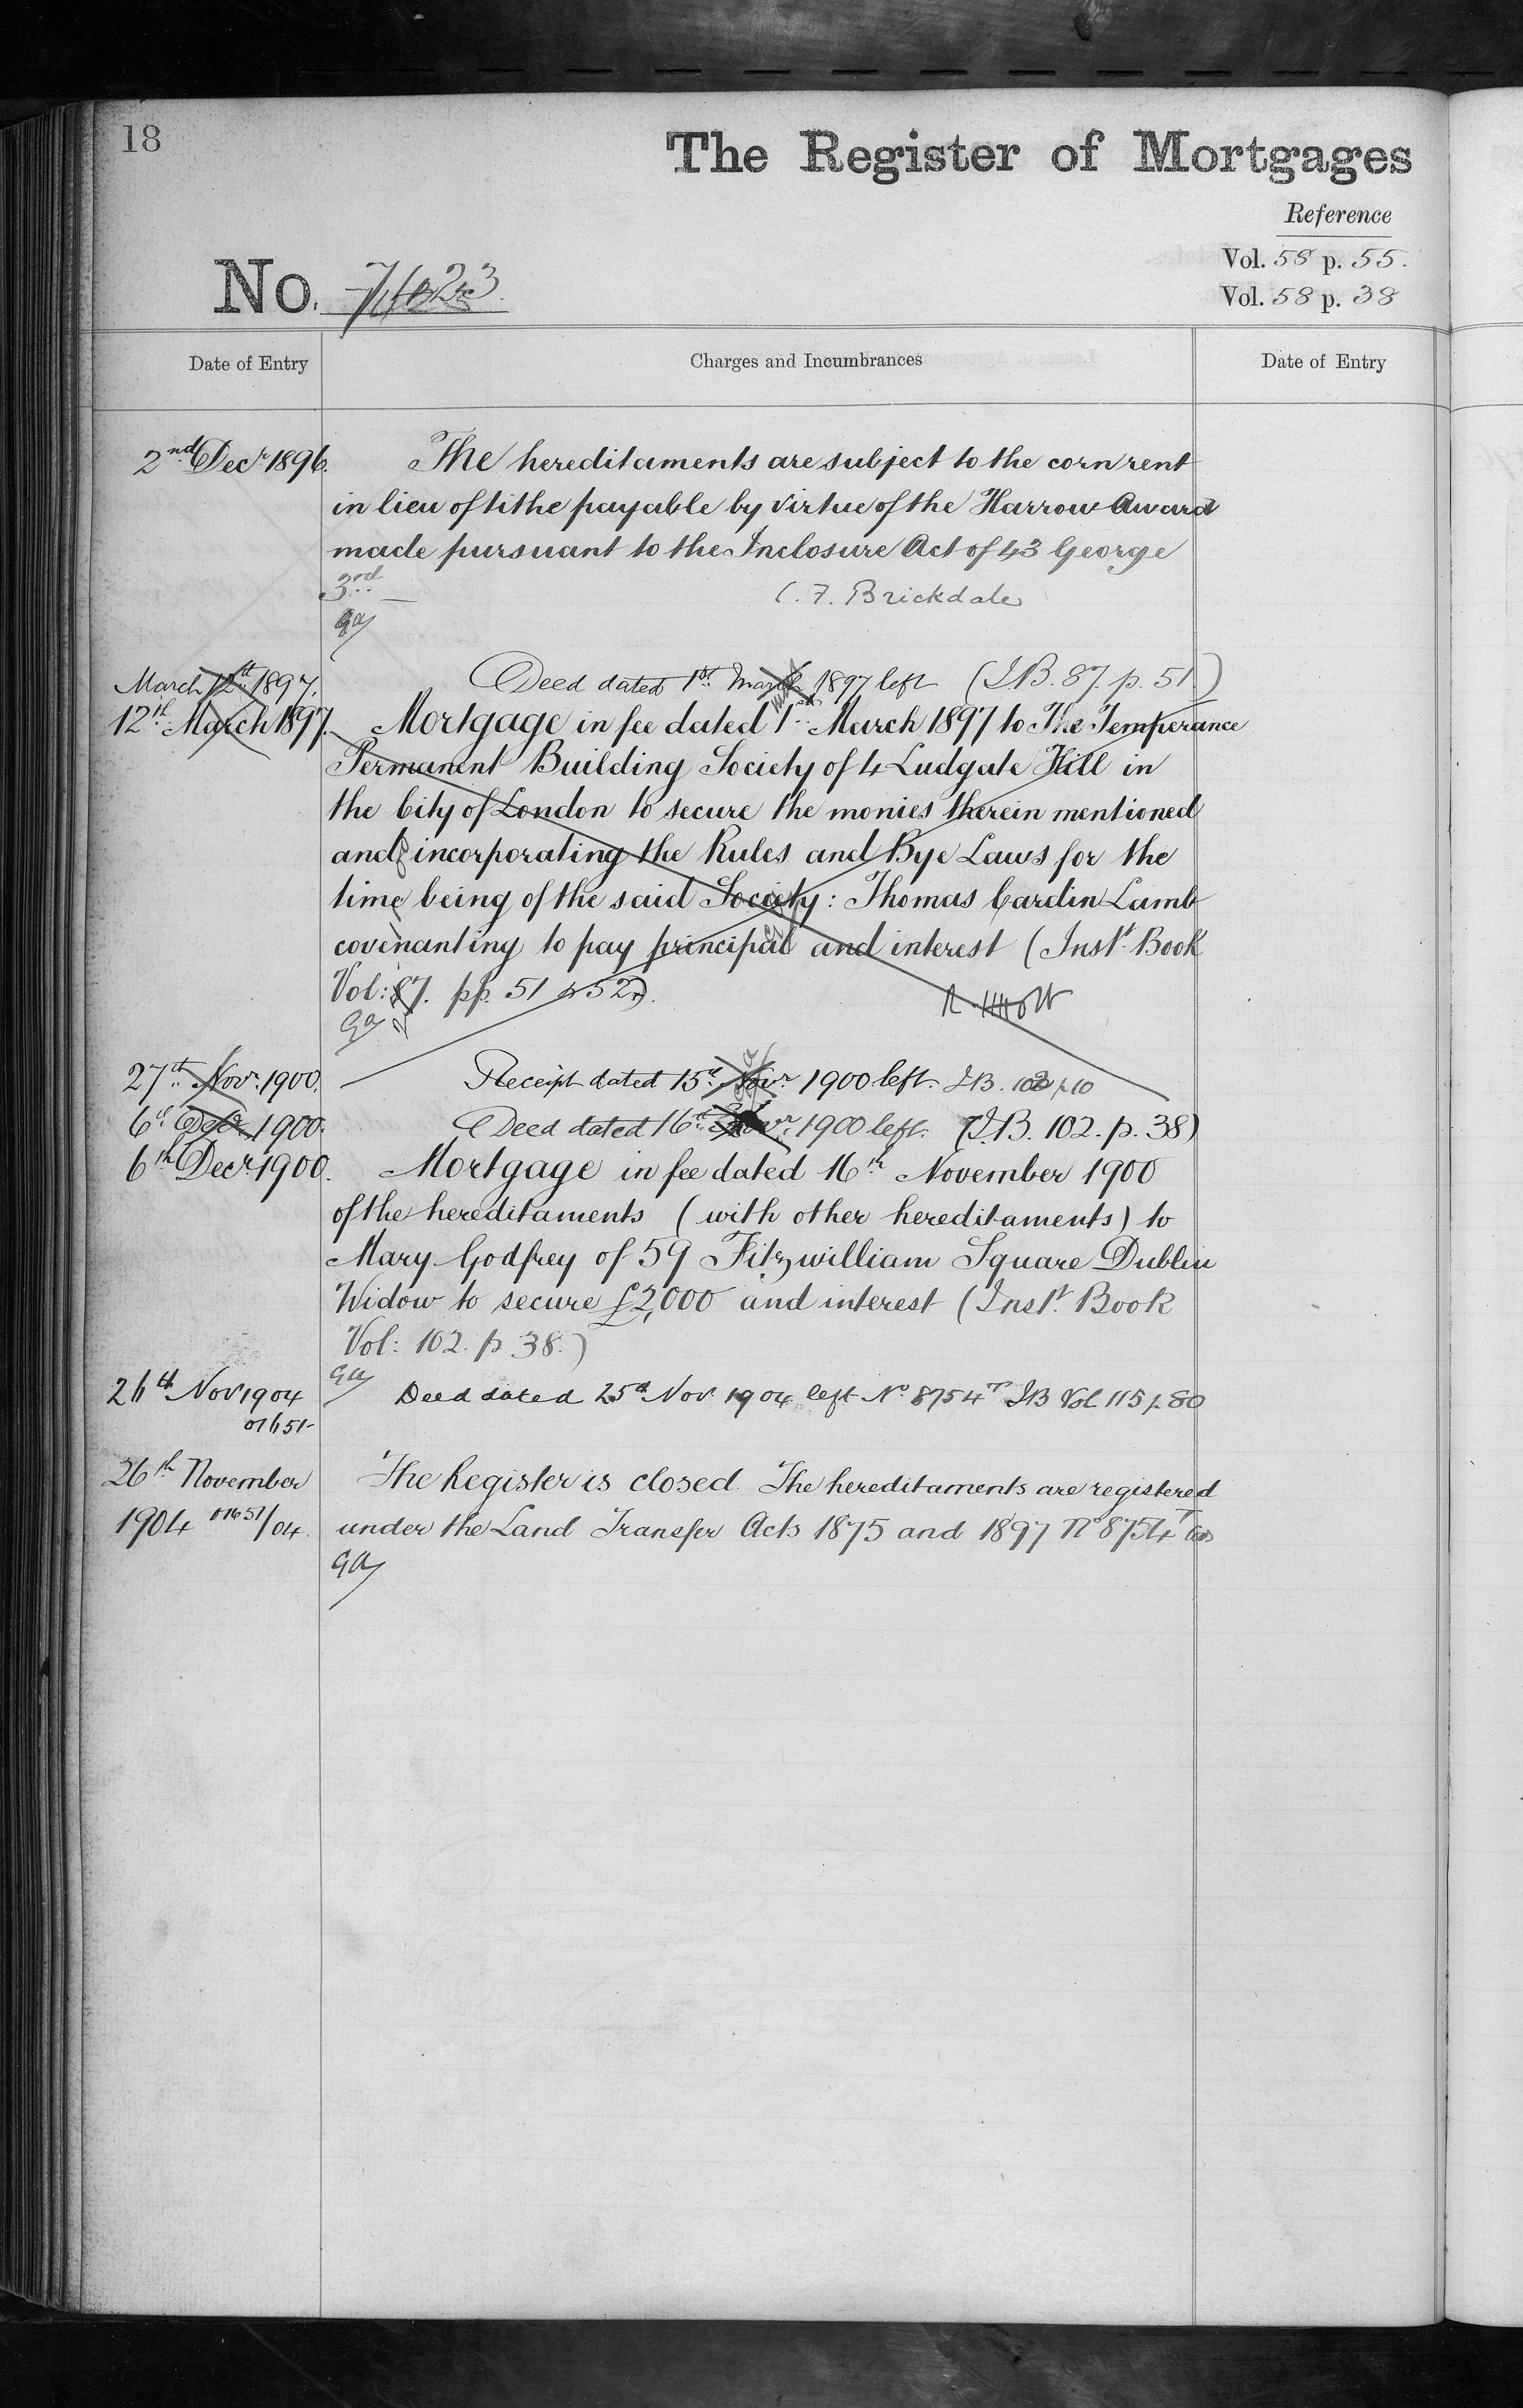 18
The Register of Mortgages
Reference
Vol. 58 p. 55.
Vol. 58 p. 38
No.
Date of Entry Charges and Incumbrances Date of Entry
2nd Decr 1896. The hereditaments are subject to the corn rent
in lieu of tithe payable by virtue of the Harrow Award
made pursuant to the Inclosure Act of 43 George
3rd
C. F. Brickdale
GA
March 12th 1897. Deed dated 1st March 1897 left (I.B. 87. p. 51.)
12th March 1897. Mortgage in fee dated 1st March 1897 to The Temperance
Permanent Building Society of 4 Ludgate Hill in
the City of London to secure the monies therein mentioned
and incorporating the Rules and Bye Laws for the
time being of the said Society: Thomas Cardin Lamb
covenanting to pay principal and interest (Inst. Book
Vol: 87. pp. 51 & 52.)
GA
27th Novr. 1900. Receipt dated 15th Novr 1900 left. I.B. 102 p 10
6th Decr 1900. Deed dated 16th Novr. 1900 left. (I.B. 102. p. 38)
6th Decr 1900. Mortgage in fee dated 16th November 1900
of the hereditaments (with other hereditaments) to
Mary Godfrey of 59 Fitzwilliam Square Dublin
Widow to secure £2,000 and interest (Inst. Book
Vol: 102. p. 38.)
GA
26th Nov 1904 Deed dated 25th Nov 1904 left No. 8754 IB Vol 115 p. 80
01651
26th November The Register is closed. The hereditaments are registered
1904 01651/04. under the Land Transfer Acts 1875 and 1897 No 8754
GA